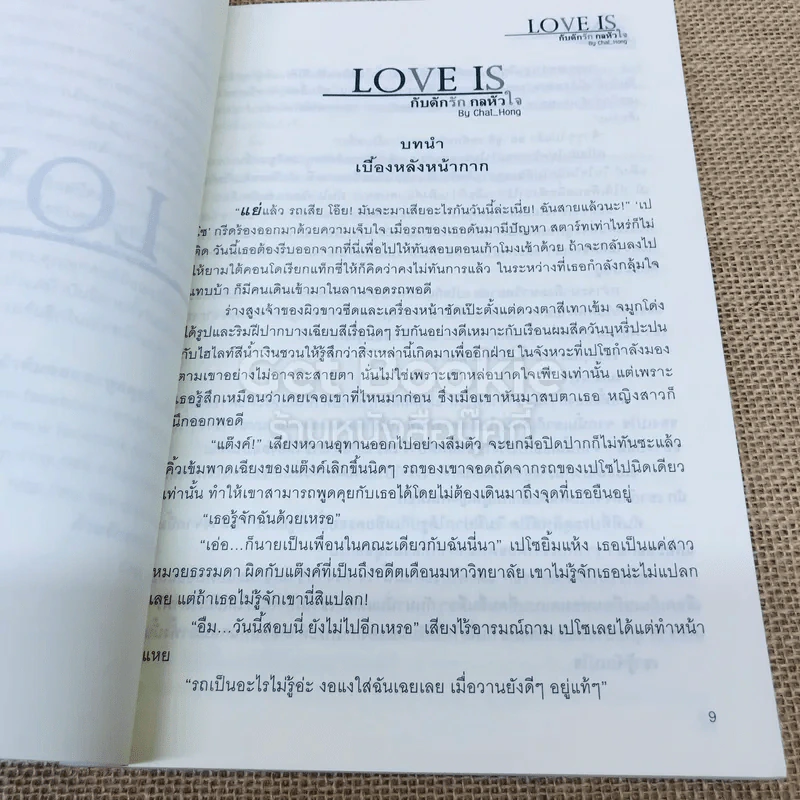 LOVE IS
กับดักรัก กลหัวใจ
By Chal_Hong
LOVE IS
กับดักรัก กลหัวใจ
By Chal_Hong
บทนำ
เบื้องหลังหน้ากาก
“แย่แล้ว รถเสีย โอ๊ย! มันจะมาเสียอะไรกันวันนี้ล่ะเนี่ย! ฉันสายแล้วนะ!” ‘เป
โซ’ กรีดร้องออกมาด้วยความเจ็บใจ เมื่อรถของเธอดันมามีปัญหา สตาร์ทเท่าไหร่ก็ไม่
ติด วันนี้เธอต้องรีบออกจากที่นี่เพื่อไปให้ทันสอบตอนเก้าโมงเช้าด้วย ถ้าจะกลับลงไป
ให้ยามใต้คอนโดเรียกแท็กซี่ให้ก็คิดว่าคงไม่ทันการแล้ว ในระหว่างที่เธอกำลังกลุ้มใจ
แทบบ้า ก็มีคนเดินเข้ามาในลานจอดรถพอดี
ร่างสูงเจ้าของผิวขาวซีดและเครื่องหน้าชัดเป๊ะตั้งแต่ดวงตาสีเทาเข้ม จมูกโด่ง
ได้รูปและริมฝีปากบางเฉียบสีเรื่อนิดๆ รับกันอย่างดีเหมาะกับเรือนผมสีควันบุหรี่ปะปน
กับไฮไลท์สีน้ำเงินชวนให้รู้สึกว่าสิ่งเหล่านี้เกิดมาเพื่ออีกฝ่าย ในจังหวะที่เปโซกำลังมอง
ตามเขาอย่างไม่อาจละสายตา นั่นไม่ใช่เพราะเขาหล่อบาดใจเพียงเท่านั้น แต่เพราะ
เธอรู้สึกเหมือนว่าเคยเจอเขาที่ไหนมาก่อน ซึ่งเมื่อเขาหันมาสบตาเธอ หญิงสาวก็
นึกออกพอดี
“แต๊งค์!” เสียงหวานอุทานออกไปอย่างลืมตัว จะยกมือปิดปากก็ไม่ทันซะแล้ว
คิ้วเข้มพาดเฉียงของแต๊งค์เลิกขึ้นนิดๆ รถของเขาจอดถัดจากรถของเปโซไปนิดเดียว
เท่านั้น ทำให้เขาสามารถพูดคุยกับเธอได้โดยไม่ต้องเดินมาถึงจุดที่เธอยืนอยู่
“เธอรู้จักฉันด้วยเหรอ”
“เอ่อ...ก็นายเป็นเพื่อนในคณะเดียวกับฉันนี่นา” เปโซยิ้มแห้ง เธอเป็นแค่สาว
หมวยธรรมดา ผิดกับแต๊งค์ที่เป็นถึงอดีตเดือนมหาวิทยาลัย เขาไม่รู้จักเธอน่ะไม่แปลก
เลย แต่ถ้าเธอไม่รู้จักเขานี่สิแปลก!
“อืม...วันนี้สอบนี่ ยังไม่ไปอีกเหรอ” เสียงไร้อารมณ์ถาม เปโซเลยได้แต่ทำหน้า
แหย
“รถเป็นอะไรไม่รู้อ่ะ งอแงใส่ฉันเฉยเลย เมื่อวานยังดีๆ อยู่แท้ๆ”
9
ร้านหนังสือบุ๊คกี้